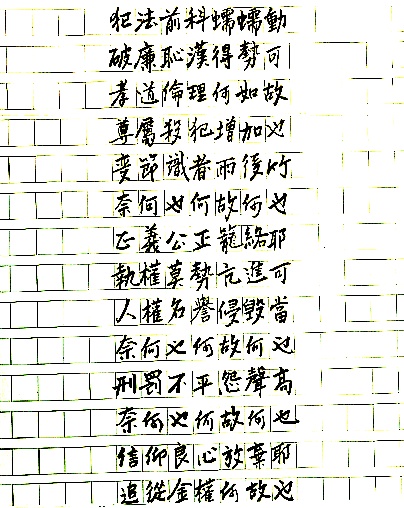 犯法前科蠕蠕動
破廉恥漢得勢可
孝道倫理何如故
尊屬殺犯增加也
変節識者雨後竹
奈何也何故何也
正義公正籠絡耶
執權莫勢亢進可
人權名譽侵毀當
奈何也何故何也
刑罰不平怨聲高
奈何也何故何也
信仰良心放棄耶
追從金權何故也